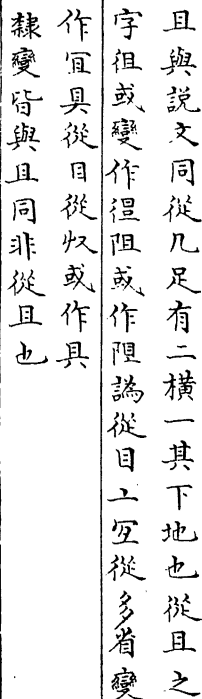 且與說文同從几足有二橫一其下地也從且之
字徂或變作阻或作譌從目冝從多省變
作冝具從目從収或作具
隸變皆與且同非從且也